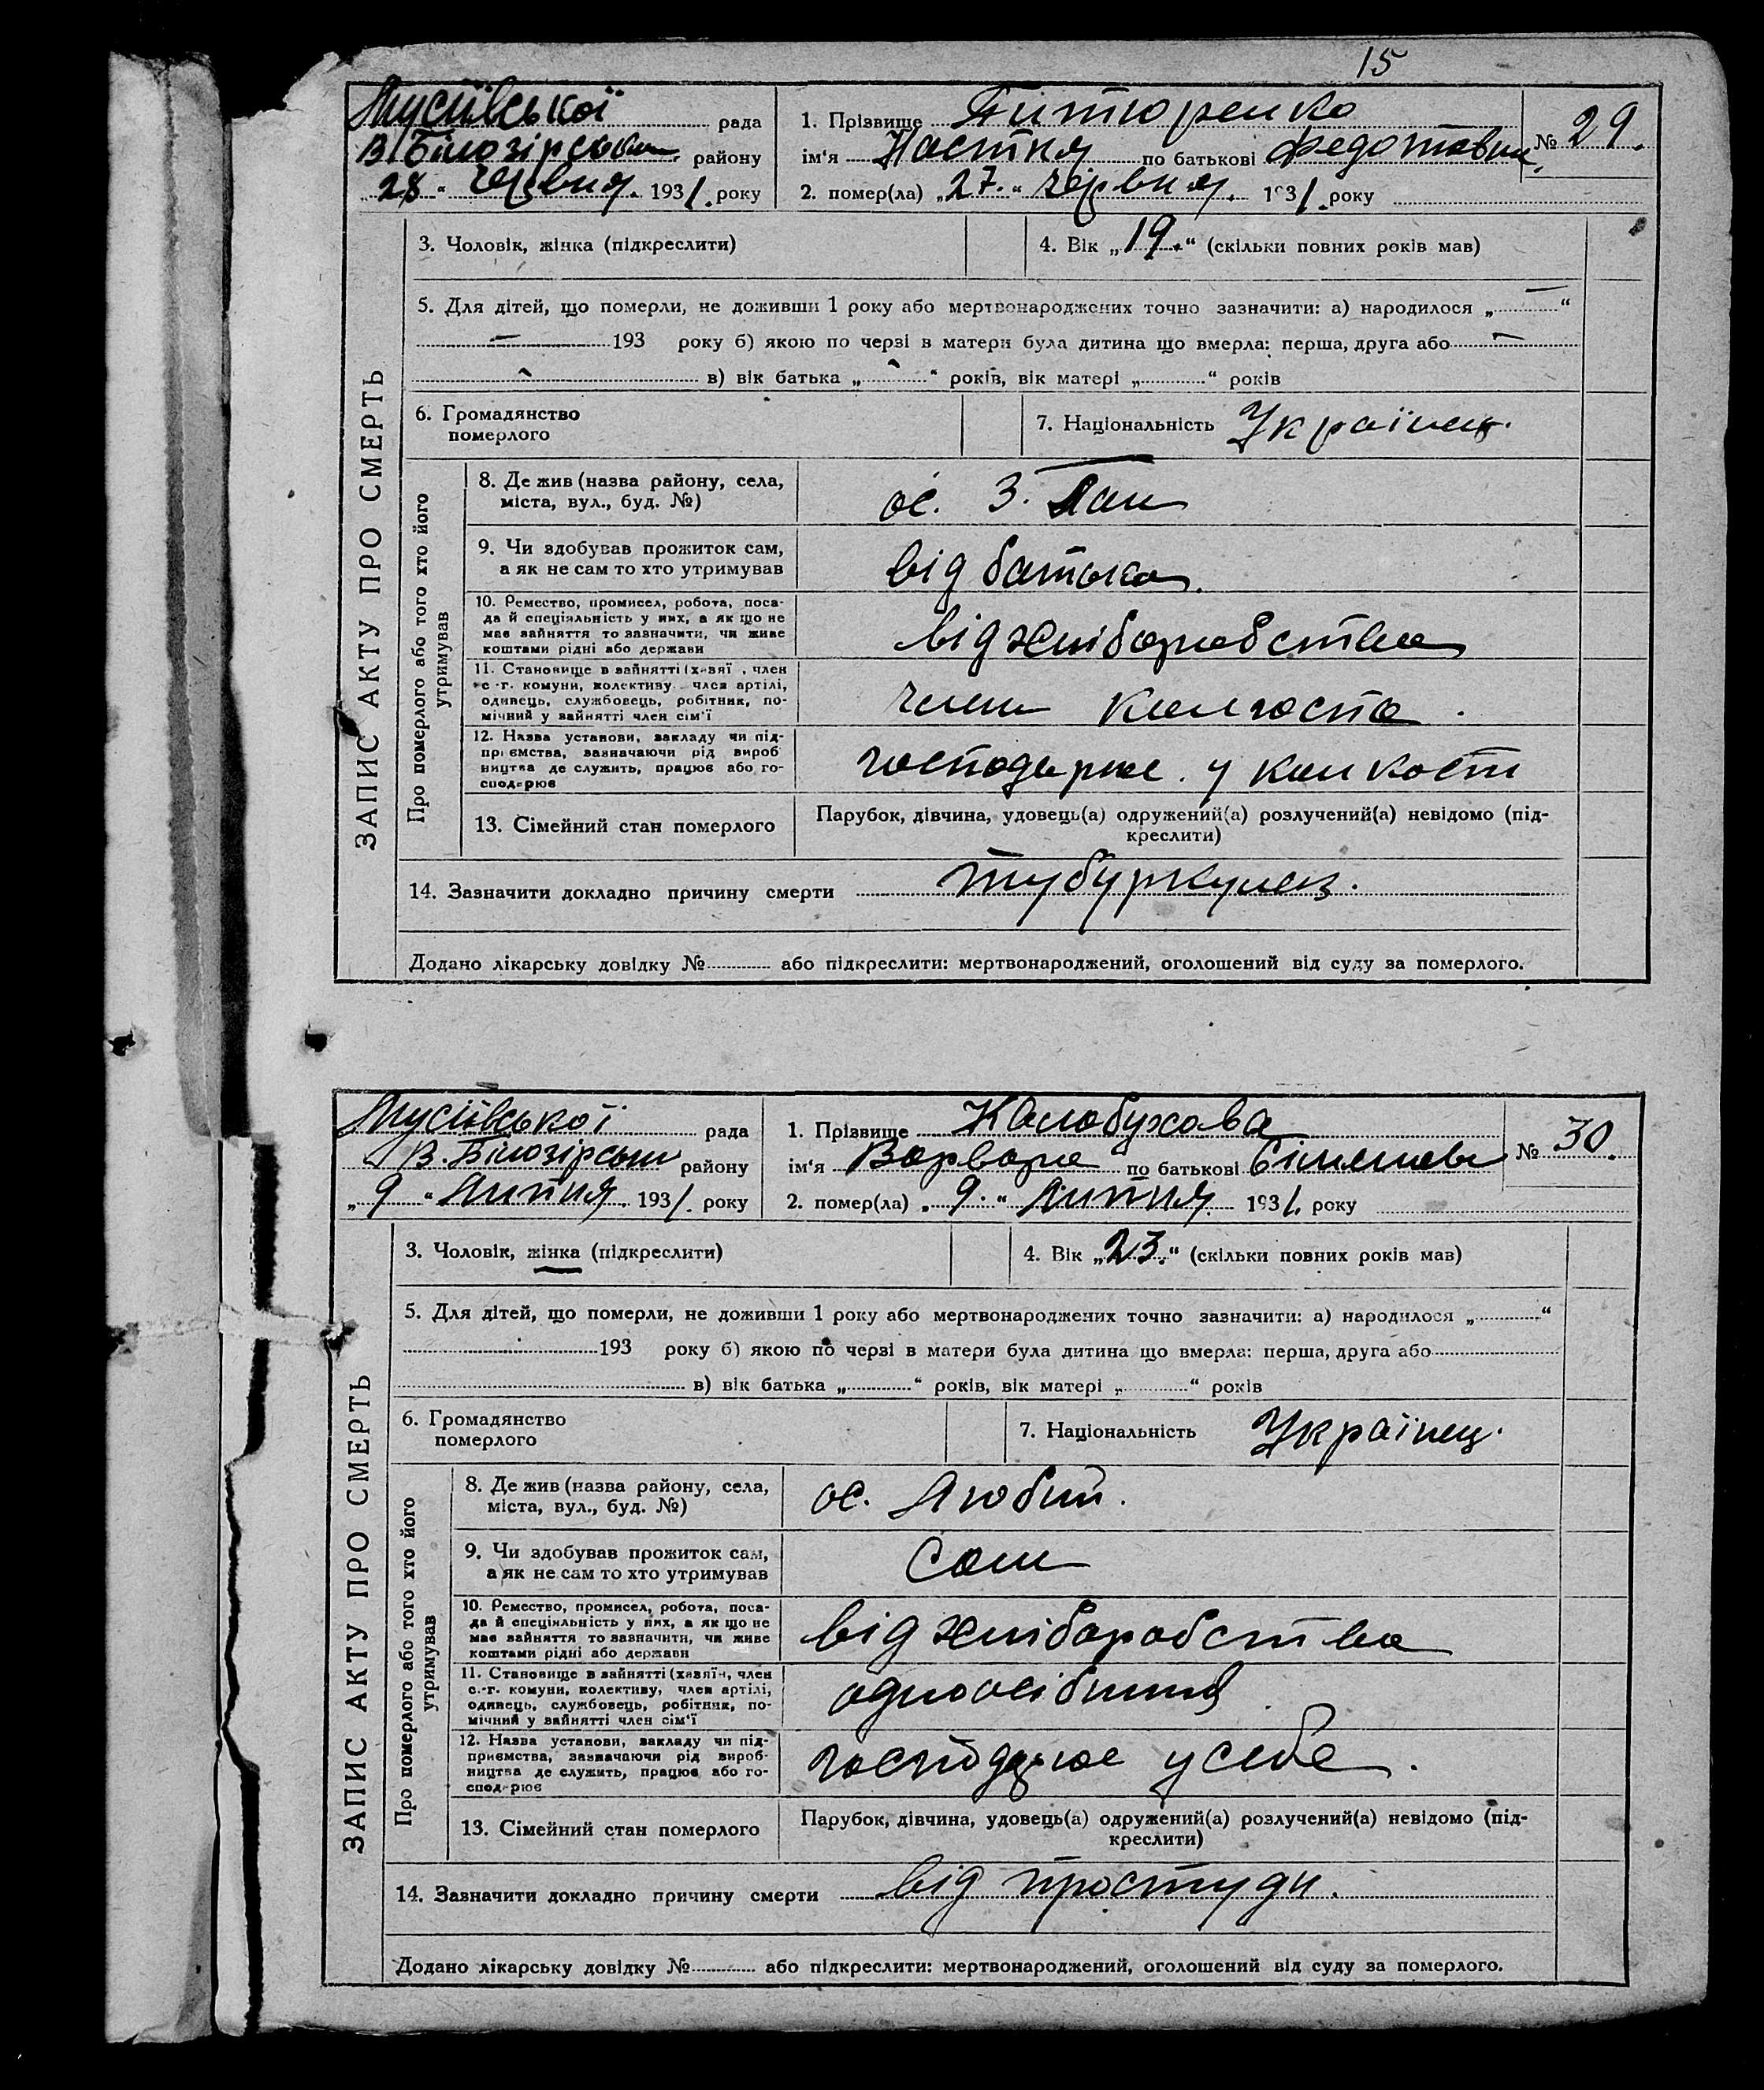 15
Мусіївської рада
В. Білозірськ району
„28“ червня 1931. року
1. Прізвище Титюренко
ім'я Настя по батькові Федотовна
№ 29.
2. помер(ла) „27.“ червня. 1931. року
ЗАПИС АКТУ ПРО СМЕРТЬ
3. Чоловік, жінка (підкреслити)
4. Вік „19.“ (скільки повних років мав)
5. Для дітей, що померли, не доживши 1 року або мертвонароджених точно зазначити: а) народилося „ — “
— 193 року б) якою по черзі в матери була дитина що вмерла: перша, друга або —
в) вік батька „ “ років, вік матері „ “ років
6. Громадянство
померлого
7. Національність Українец.
Про померлого або того хто його
утримував
8. Де жив (назва району, села,
міста, вул., буд. №)
ос. З. Пан
9. Чи здобував прожиток сам,
а як не сам то хто утримував
від батька.
10. Ремество, промисел, робота, поса-
да й спеціяльність у них, а як що не
має зайняття то зазначити, чи живе
коштами рідні або держави
від хліборобства
11. Становище в зайнятті (хазяї, член
с.-г. комуни, колективу, член артілі,
одинець, службовець, робітник, по-
мічний у зайнятті член сім'ї
член колгоспа.
12. Назва установи, закладу чи під-
приємства, зазначаючи рід вироб
ництва де служить, працює або го-
сподарює
господарює у колкосп
13. Сімейний стан померлого
Парубок, дівчина, удовець(а) одружений(а) розлучений(а) невідомо (під-
креслити)
14. Зазначити докладно причину смерти тубуркулез.
Додано лікарську довідку № або підкреслити: мертвонароджений, оголошений від суду за померлого.
Мусіївської рада
В. Білозірськ району
„9“ Липня 1931. року
1. Прізвище Калобухова
ім'я Варвара по батькові
№ 30.
2. помер(ла) „9.“ Липня 1931. року
ЗАПИС АКТУ ПРО СМЕРТЬ
3. Чоловік, жінка (підкреслити)
4. Вік „23.“ (скільки повних років мав)
5. Для дітей, що померли, не доживши 1 року або мертвонароджених точно зазначити: а) народилося „ “
193 року б) якою по черзі в матери була дитина що вмерла: перша, друга або
в) вік батька „ “ років, вік матері „ “ років
6. Громадянство
померлого
7. Національність Українец.
Про померлого або того хто його
утримував
8. Де жив (назва району, села,
міста, вул., буд. №)
ос. Любий.
9. Чи здобував прожиток сам,
а як не сам то хто утримував
Сам
10. Ремество, промисел, робота, поса-
да й спеціяльність у них, а як що не
має зайняття то зазначити, чи живе
коштами рідні або держави
від хліборобства
11. Становище в зайнятті (хазяїн, член
с.-г. комуни, колективу, член артілі,
одинець, службовець, робітник, по-
мічний у зайнятті член сім'ї
одноосібниця
12. Назва установи, закладу чи під-
приємства, зазначаючи рід вироб-
ництва де служить, працює або го-
сподарює
господарює у себе.
13. Сімейний стан померлого
Парубок, дівчина, удовець(а) одружений(а) розлучений(а) невідомо (під-
креслити)
14. Зазначити докладно причину смерти від простуди.
Додано лікарську довідку № або підкреслити: мертвонароджений, оголошений від суду за померлого.